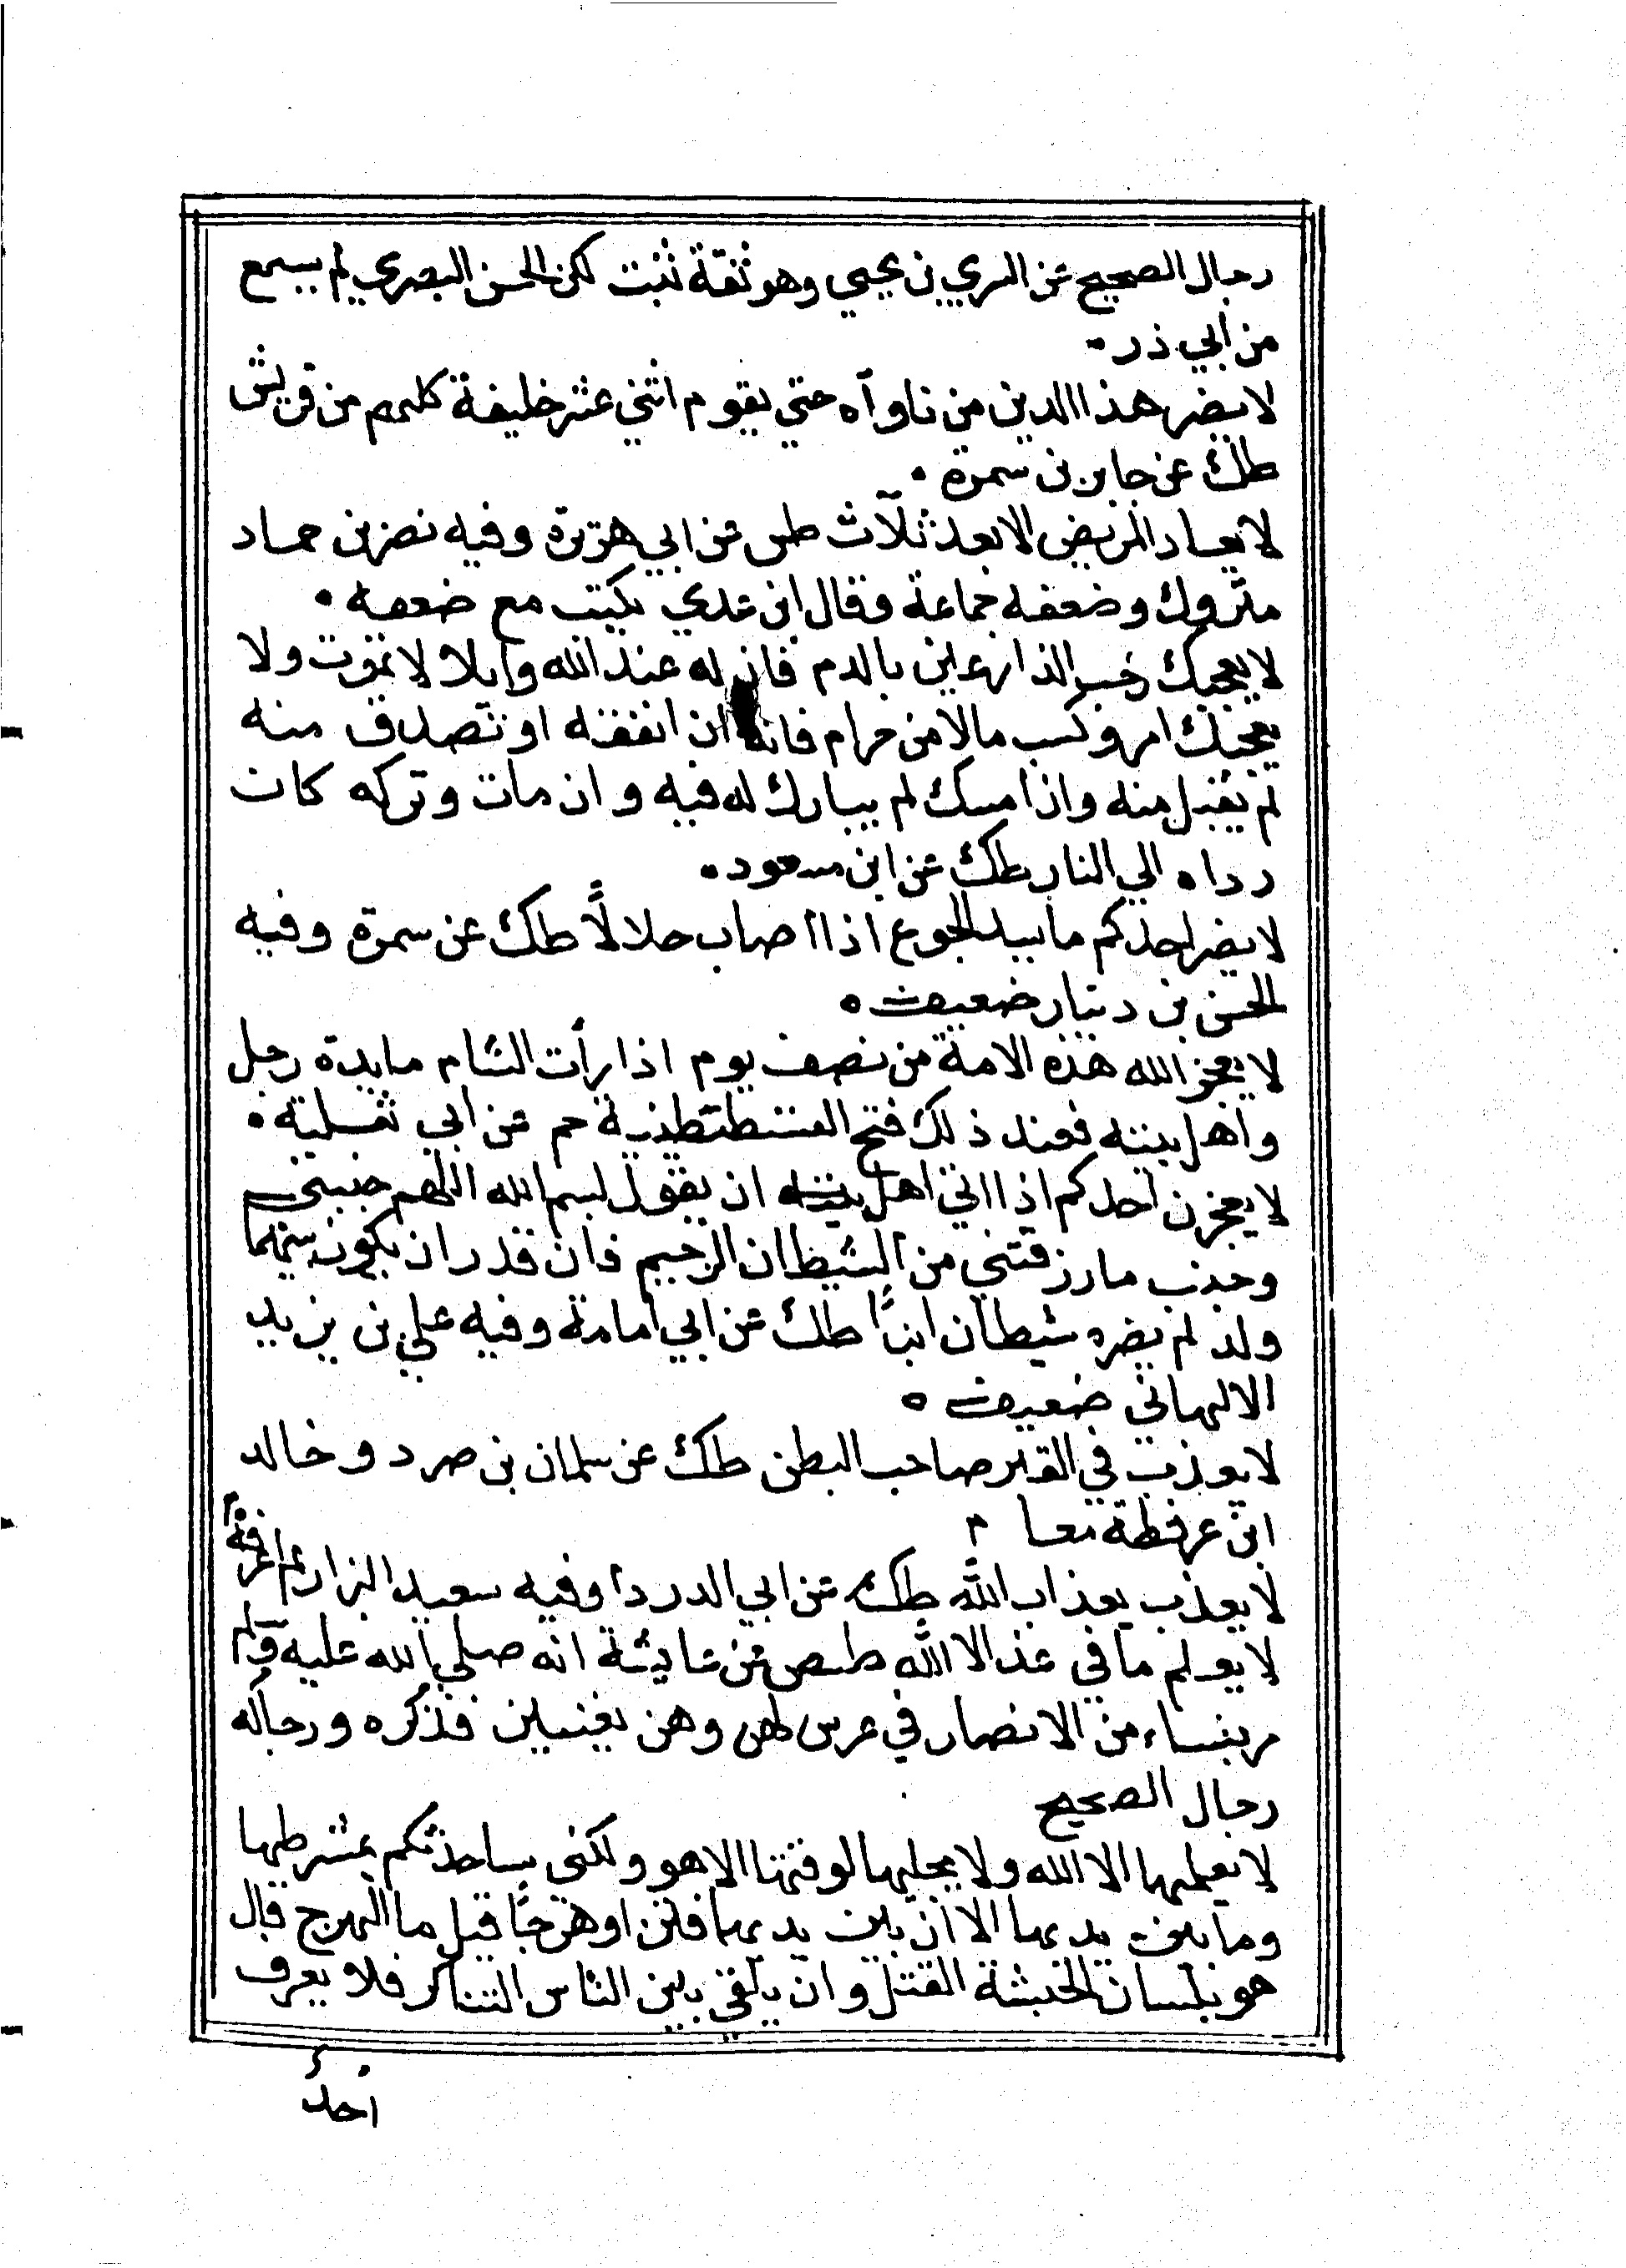 رجال الصحيح عن السري بن يحيي وهو ثقة ثبت لكن الحسن البصري لم يسمع
من ابي ذر
لا يضر هذا الدين من ناوآه حتي يقوم اثني عشر خليفة كلهم من قريش
طك عن جابر بن سمرة
لا يعاد المريض الا بعد ثلاث طس عن ابي هريرة وفيه نصر بن حماد
متروك وضعفه جماعة وقال ابن عدي يكتب مع ضعفه
لا يعجبك رحب الذارعين بالدم فان له عند الله وايلا لا يموت ولا
يعجبك امرو كسب مالا من حرام فانه ان انفقه او تصدق منه
لم يقبل منه واذا مسك لم يبارك له فيه وان مات وتركه كان
رداه الي النار طك عن ابن مسعود
لا يضر احدكم ما بيد الجوع اذا اصاب حلالًا طك عن سمرة وفيه
الحسن بن دينار ضعيف
لا يعجز الله هذه الامة من نصف يوم اذا رأت الشام مايدة رجل
واهل بيته فعند ذلك فتح القسطنطنية حم عن ابي ثعلبة
لا يعجزن احدكم اذا اتي اهل ان يقول بسم الله اللهم جنبني
وجنب ما رزقتني من الشيطان الرجيم فان قدر ان يكون بينهما
ولد لم يضره شيطان ابدًا طك عن ابي امامة وفيه علي بن يزيد
الالهاني ضعيف
لا يعذب في القبر صاحب البطن طك عن سلمان بن صرد وخالد
ابن عرفطة معا
لا يعذب بعذاب الله طك عن ابي الدرداء وفيه سعيد البزار لم اعرفه
لا يعلم ما في غد الا الله طص عن عايشة انه صلي الله عليه وسلم
مر بنساء من الانصار في عرس لهن وهن يغنين فذكره ورجاله
رجال الصحيح
لا يعلمها الا الله ولا يجليها لوقتها الا هو ولكني ساحدثكم بمشرطها
وما بين يديها الا ان بين يديها فتن او هرجًا قيل ما الهرج قال
هو بلسان الحبشة القتل وان يلقي بين الناس التناكر فلا يعرف
احد